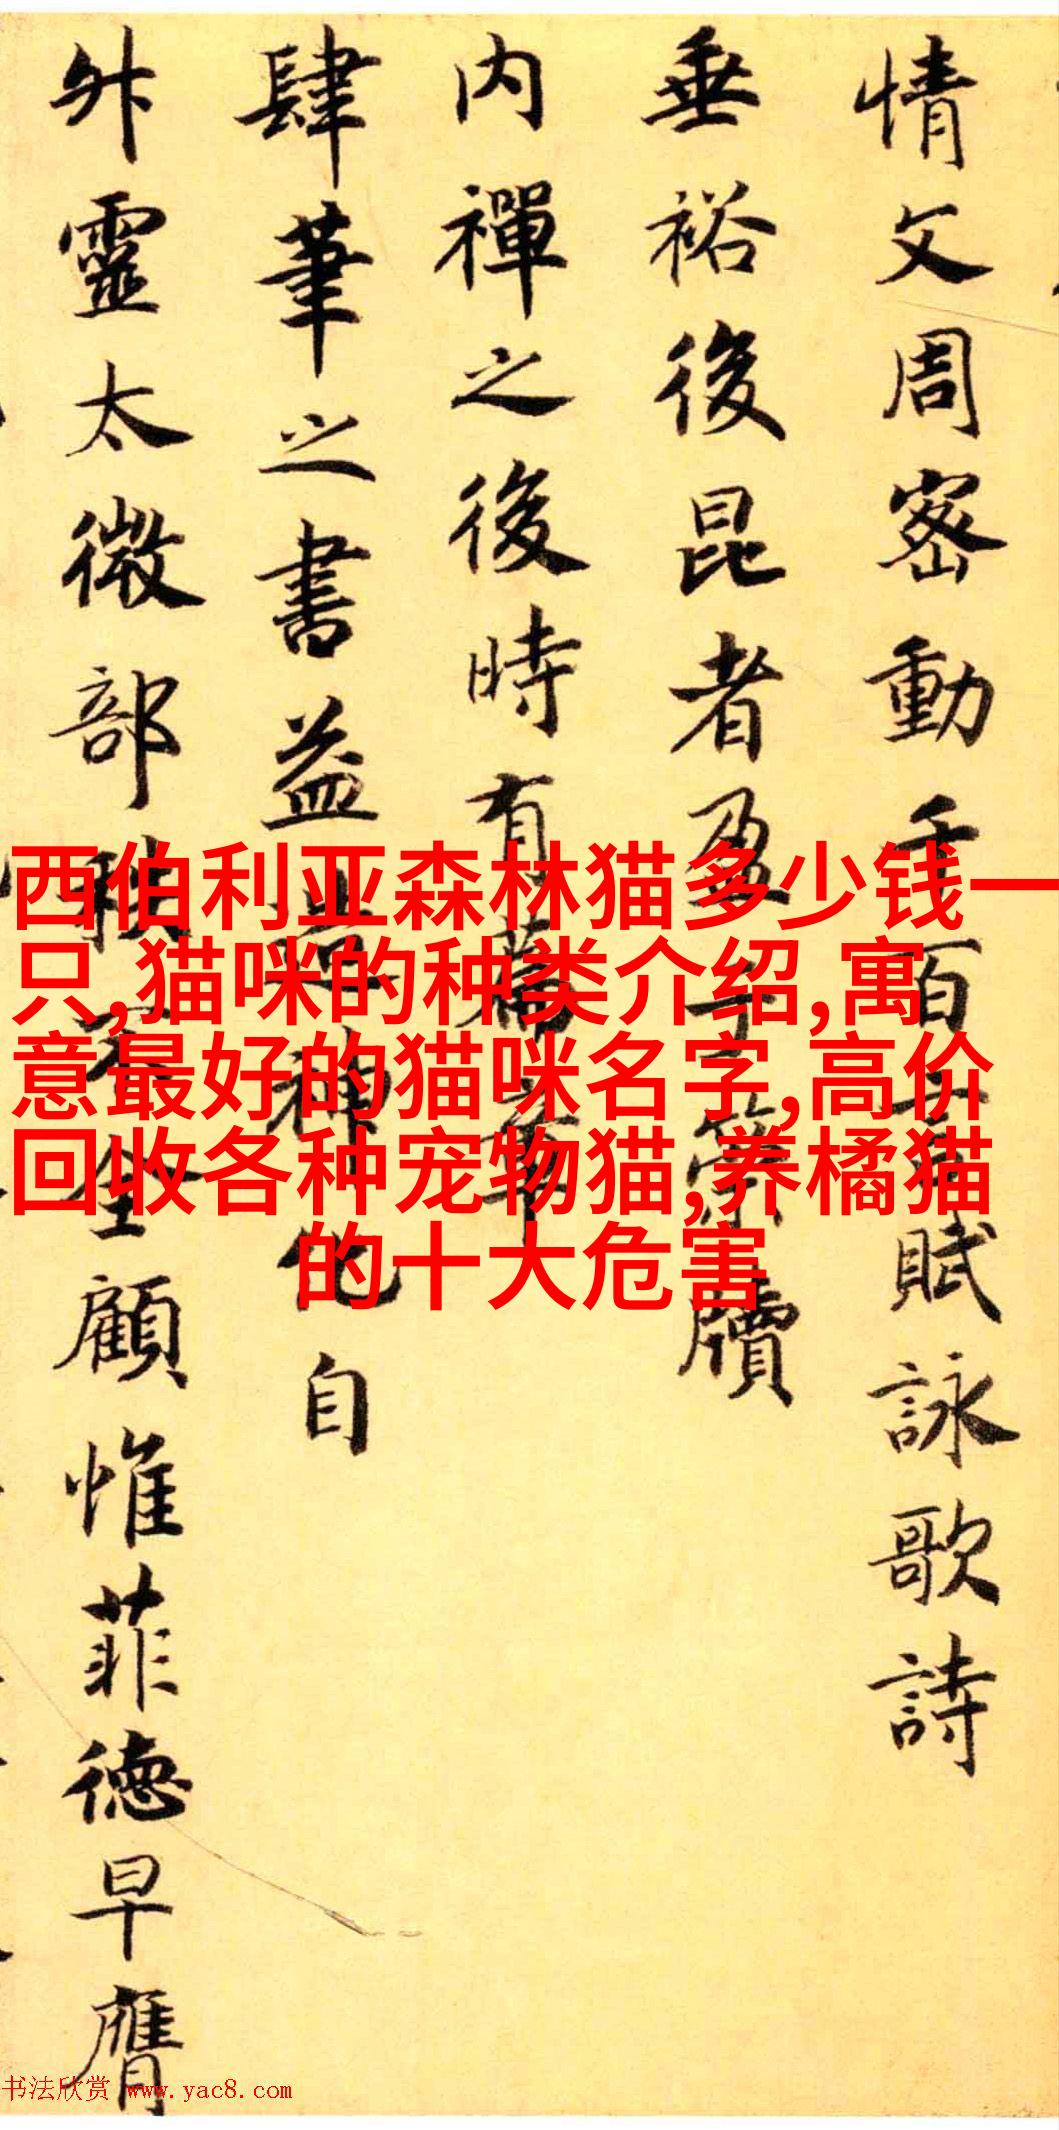 情文周密動千百賦詠歌詩
垂裕後昆者盈牘
内禪之後時有舊
肆筆之書益進神化自
靈太微部秩全顧惟菲德早膺
西伯利亚森林猫多少钱一
只,猫咪的种类介绍,寓
意最好的猫咪名字,高价
回收各种宠物猫,养橘猫
的十大危害
书法欣赏 www.yac8.com